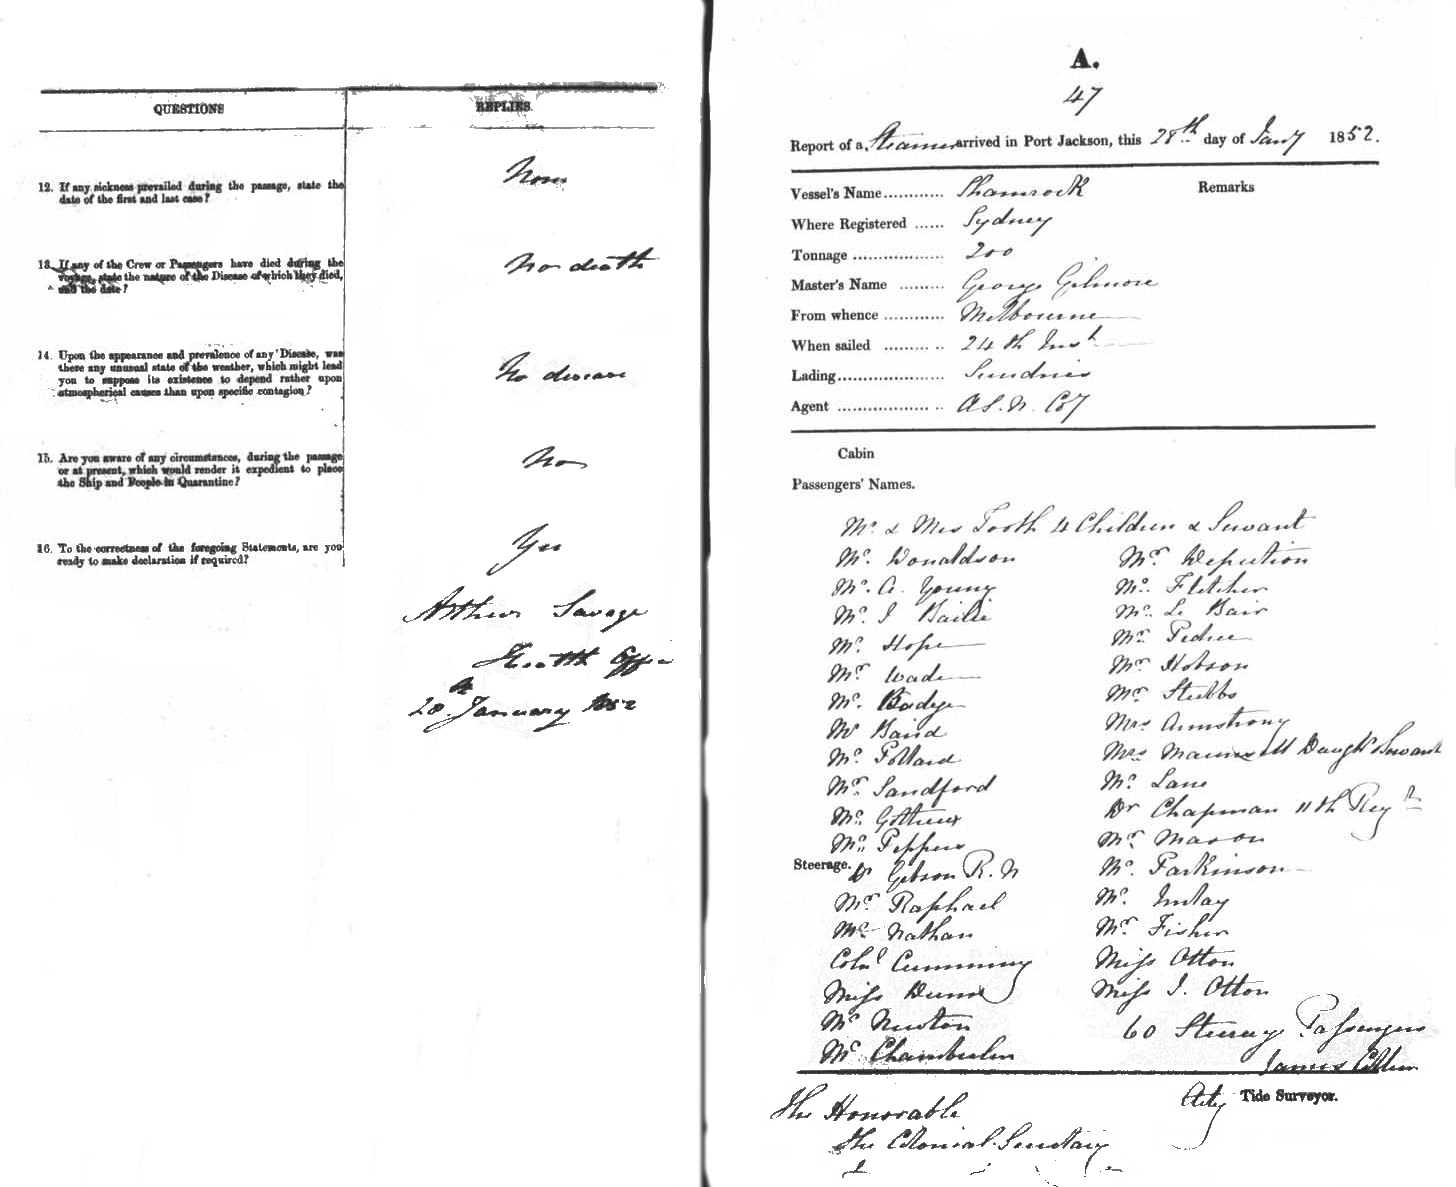 QUESTIONS
REPLIES.
12. If any sickness prevailed during the passage, state the
date of the first and last case?
None
13. If any of the Crew or Passengers have died during the
voyage, state the nature of the Disease of which they died,
and the date?
No death
14. Upon the appearance and prevalence of any Disease, was
there any unusual state of the weather, which might lead
you to suppose its existence to depend rather upon
atmospherical causes than upon specific contagion?
No disease
15. Are you aware of any circumstances, during the passage
or at present, which would render it expedient to place
the Ship and People in Quarantine?
No
16. To the correctness of the foregoing Statements, are you
ready to make declaration if required?
Yes
Arthur Savage
Health Officer
28th January 1852
A.
47
Report of a Steamer arrived in Port Jackson, this 28th day of Jany 1852.
Vessel's Name ............ Shamrock
Remarks
Where Registered ...... Sydney
Tonnage ................... 200
Master's Name ......... George Gilmore
From whence ............ Melbourne
When sailed ............ 24th Inst
Lading...................... Sundries
Agent ..................... A.S.N. Coy
Cabin
Passengers' Names.
Mr. & Mrs Tooth 4 Children & Servant
Mr. Donaldson
Mr. Depution
Mr. A. Young
Mr. Fletcher
Mr. J Bailie
Mr. Le Bair
Mr. Hope
Mr.
Mr. Wade
Mr. Hobson
Mr. Badge
Mr. Stubbs
Mr Baird
Mrs Armstrong
Mr. Pollard
Mrs Maunsell Daught Servant
Mr. Sandford
Mr. Lane
Mr.
Dr Chapman 11th Regt
Mr. Peppers
Mr. Mason
Steerage.
Dr Gibson R.N
Mr. Parkinson
Mr. Raphael
Mr. Imlay
Mr. Nathan
Mr. Fisher
Colnl Cumming
Miss Otton
Miss Dunn
Miss J. Otton
Mr Newton
60 Steerage Passengers
Mr Chamberlin
James
Actg Tide Surveyor.
The Honorable
The Colonial Secretary